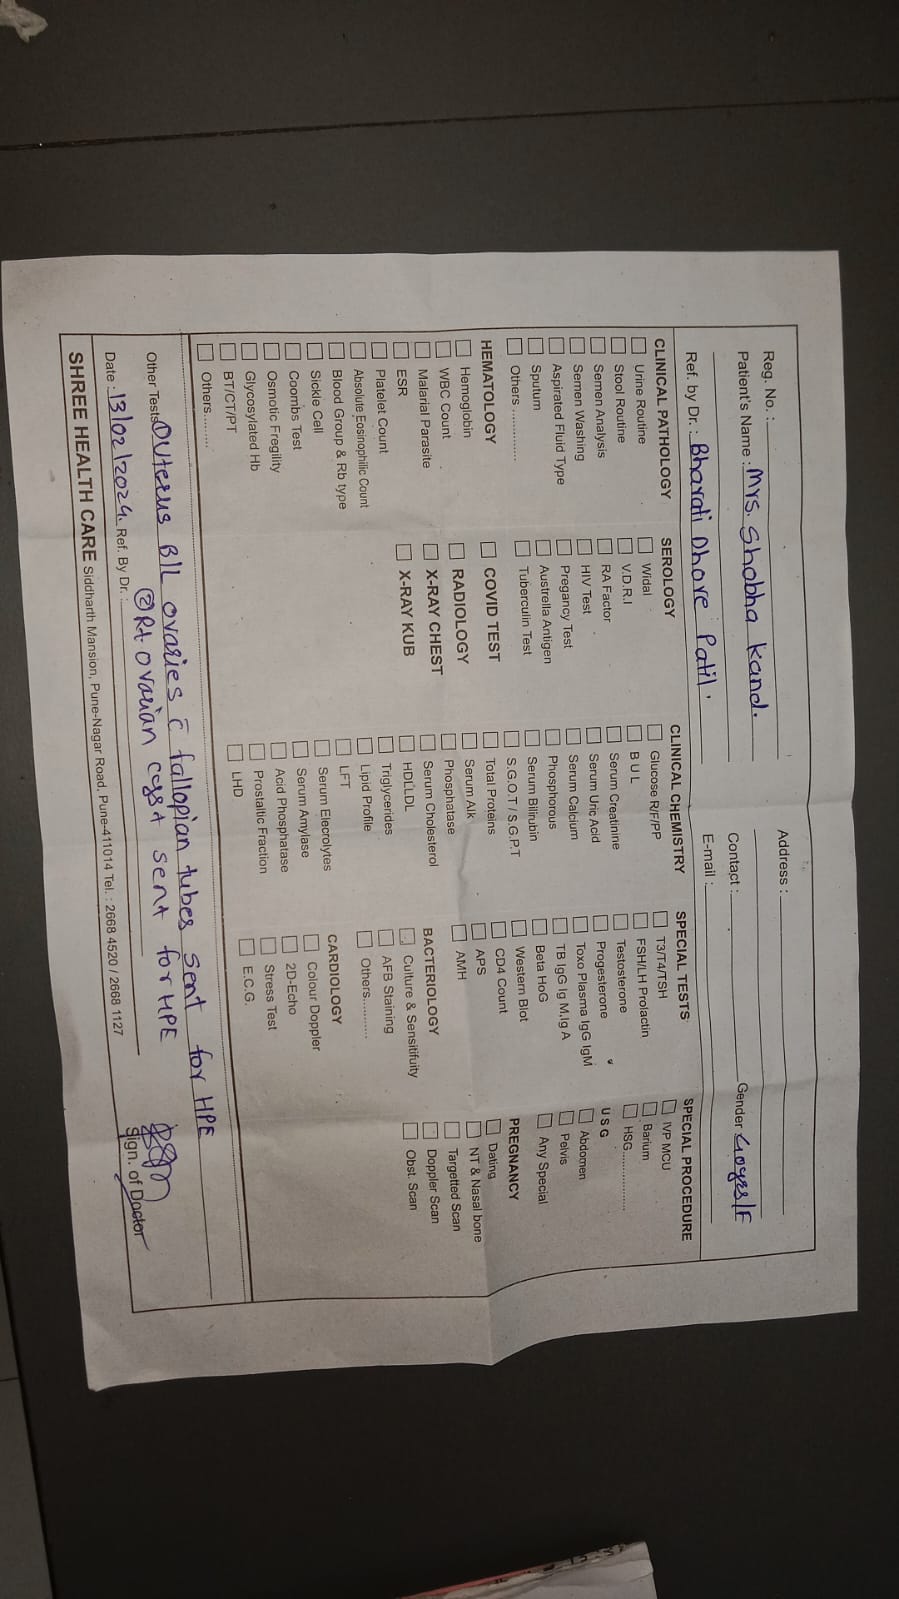 Reg. No. :
Patient's Name : Mrs. Shobha Kand.
Ref. by Dr. : Bharati Dhore Patil.
Address :
Contact :
E-mail :
Gender 40yrs/F
CLINICAL PATHOLOGY
Urine Routine
Stool Routine
Semen Analysis
Semen Washing
Aspirated Fluid Type
Sputum
Others ............
HEMATOLOGY
Hemoglobin
WBC Count
Malarial Parasite
ESR
Platelet Count
Absolute Eosinophilic Count
Blood Group & Rb type
Sickle Cell
Coombs Test
Osmotic Fregility
Glycosylated Hb
BT/CT/PT
Others.........
SEROLOGY
Widal
V.D.R.I
RA Factor
HIV Test
Pregancy Test
Austrella Antigen
Tuberculin Test
COVID TEST
RADIOLOGY
X-RAY CHEST
X-RAY KUB
CLINICAL CHEMISTRY
Glucose R/F/PP
B U L
Serum Creatinine
Serum Uric Acid
Serum Calcium
Phosphorous
Serum Bilirubin
S.G.O.T / S.G.P.T
Total Proteins
Serum Alk
Phosphatase
Serum Cholesterol
HDL\LDL
Triglycerides
Lipid Profile
LFT
Serum Elecrolytes
Serum Amylase
Acid Phosphatase
Prostaltic Fraction
LHD
SPECIAL TESTS
T3/T4/TSH
FSH/LH Prolactin
Testosterone
Progesterone
Toxo Plasma IgG IgM
TB IgG Ig M,Ig A
Beta HoG
Western Blot
CD4 Count
APS
AMH
BACTERIOLOGY
Culture & Sensitifuity
AFB Staining
Others...........
CARDIOLOGY
Colour Doppler
2D-Echo
Stress Test
E.C.G.
SPECIAL PROCEDURE
IVP MCU
Barium
HSG................
U S G
Abdomen
Pelvis
Any Special
PREGNANCY
Dating
NT & Nasal bone
Targetted Scan
Doppler Scan
Obst. Scan
Other Tests ① Uterus B/L ovaries c̄ fallopian tubes sent for HPE
② Rt ovarian cyst sent for HPE
Date : 13/02/2024. Ref. By Dr. :
Sign. of Doctor
SHREE HEALTH CARE Siddharth Mansion, Pune-Nagar Road, Pune-411014 Tel. : 2668 4520 / 2668 1127